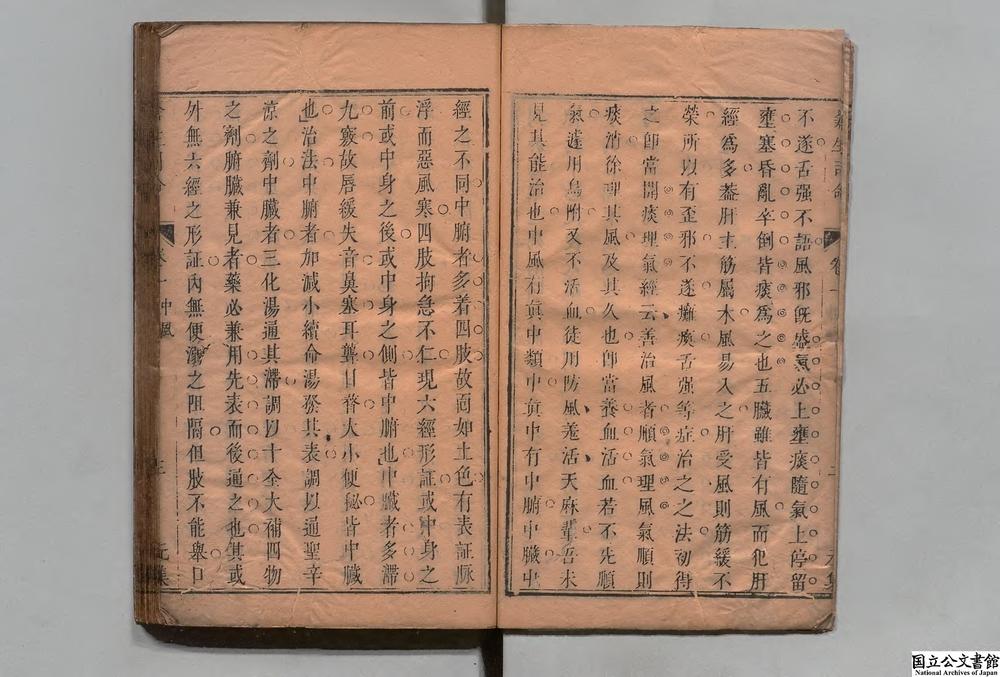 不遂舌强不語風邪旣盛氣必上壅痰隨氣上停留
壅塞昏亂卒倒皆痰爲之也五臟雖皆有風而犯肝
經爲多葢肝主筋屬木風易入之肝受風則筋緩不
榮所以有歪邪不遂癱瘓舌强等症治之之法初得
之卽當開痰理氣經云善治風者順氣理風氣順則
痰消徐理其風及其久也卽當養血活血若不先順
氣遽用烏附又不活血徒用防風羗活天麻輩吾未
見其能治也中風有眞中類中眞中有中腑中臟中
經之不同中腑者多着四肢故面如土色有表証脈
浮而惡風寒四肢拘急不仁現六經形証或中身之
前或中身之後或中身之側皆中腑也中臟者多滯
九竅故唇緩失音鼻塞耳聾目瞀大小便秘皆中臟
也治法中腑者加減小續命湯發其表調以通聖辛
涼之劑中臟者三化湯通其滯調以十全大補四物
之劑腑臟兼見者藥必兼用先表而後通之也其或
外無六經之形証內無便溺之阻隔但肢不能舉口
卷一
中風
国立公文書館
National Archives of Japan